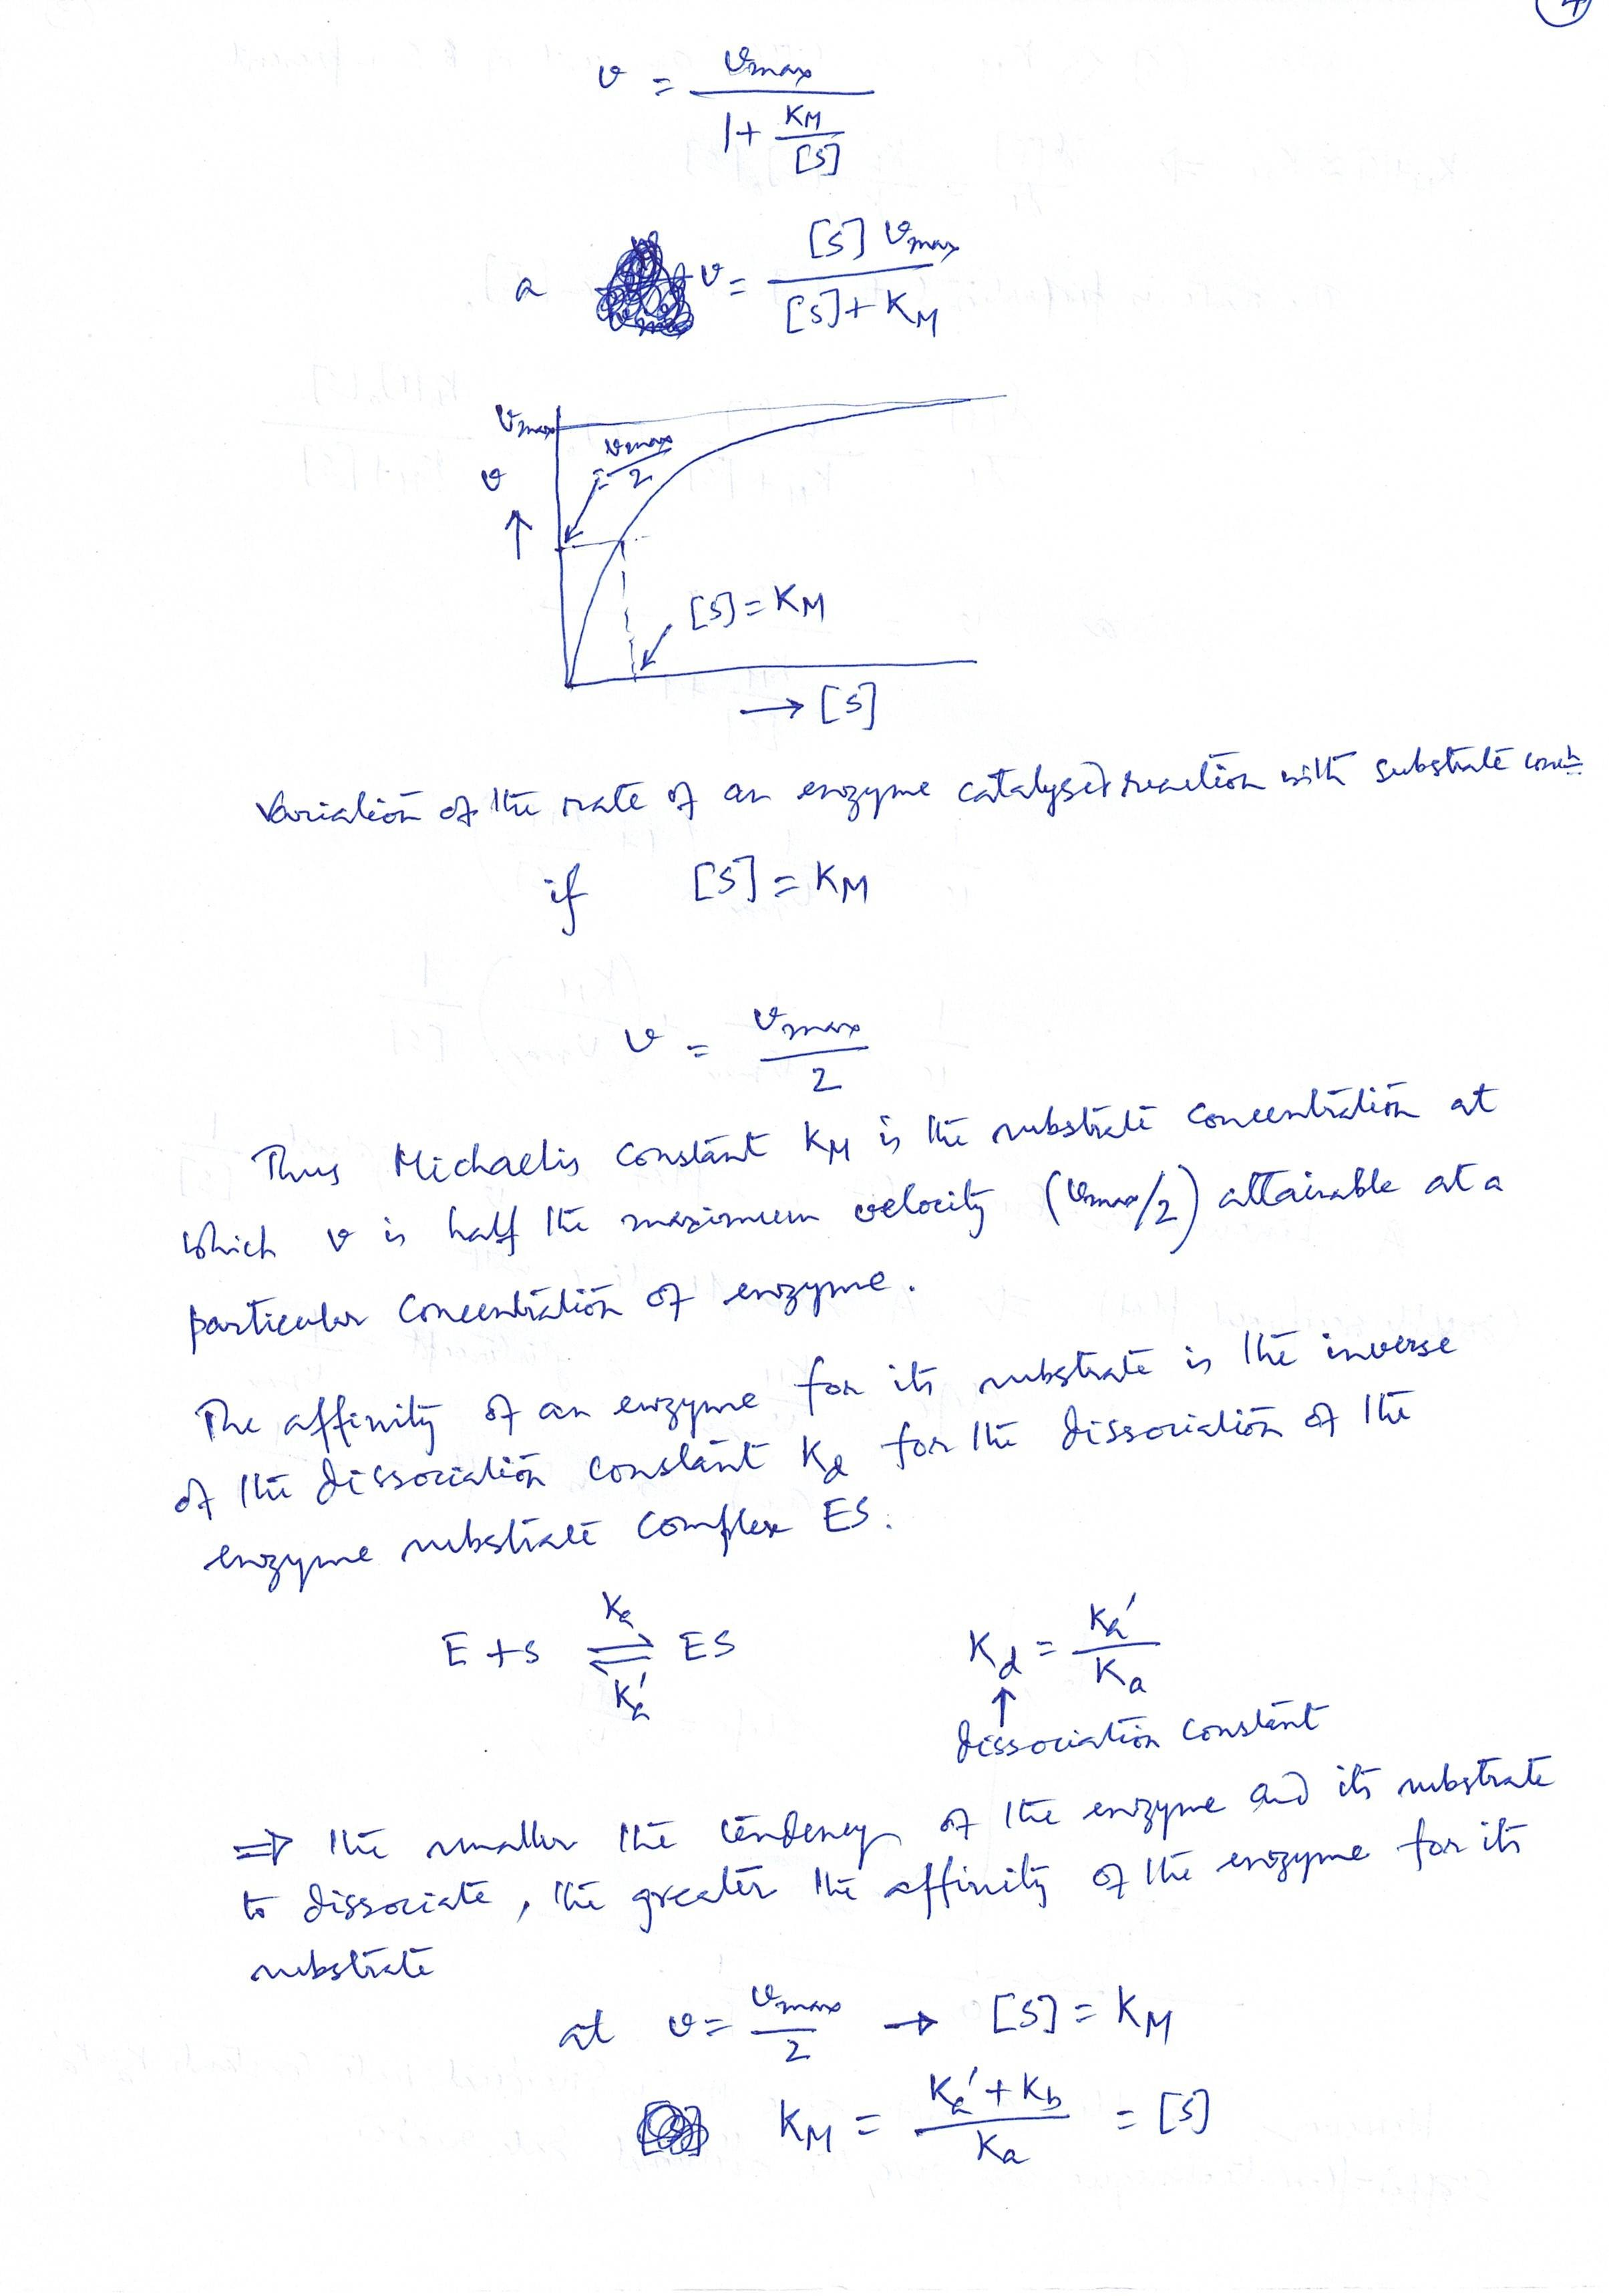 4
v = vmax / (1 + KM/[S])
or v = [S] vmax / ([S] + KM)
vmax
vmax/2
v
↑
[S] = KM
→ [S]
Variation of the rate of an enzyme catalysed reaction with substrate concn
if [S] = KM
v = vmax / 2
Thus Michaelis constant KM is the substrate concentration at
which v is half the maximum velocity (vmax/2) attainable at a
particular concentration of enzyme.
The affinity of an enzyme for its substrate is the inverse
of the dissociation constant Kd for the dissociation of the
enzyme substrate complex ES.
E + S ⇌ ES
Ka
Ka'
Kd = Ka' / Ka
↑
dissociation constant
⇒ the smaller the tendency of the enzyme and its substrate
to dissociate, the greater the affinity of the enzyme for its
substrate
at v = vmax/2 → [S] = KM
KM = (Ka' + Kb) / Ka = [S]